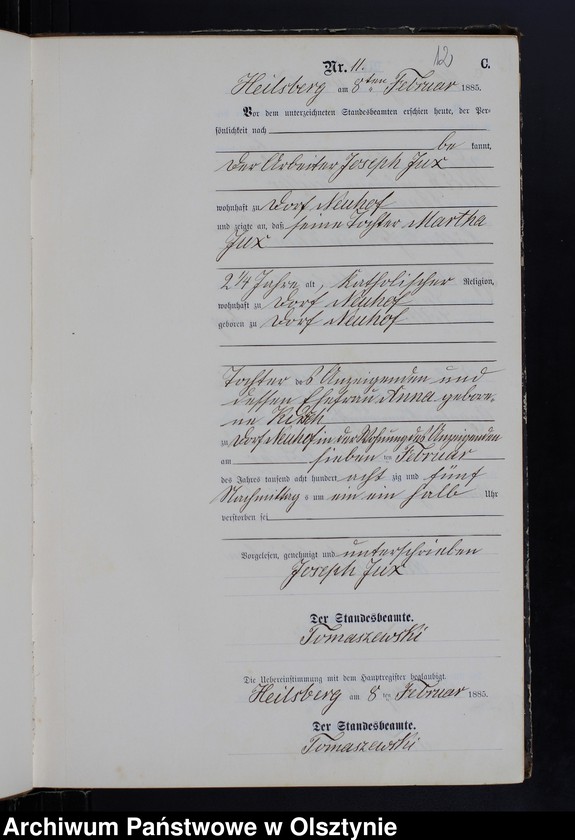 12
Nr. 11. C.
Heilsberg am 8ten Februar 1885.
Vor dem unterzeichneten Standesbeamten erschien heute, der Per-
sönlichkeit nach
be kannt,
der Arbeiter Joseph Jux
wohnhaft zu Dorf Neuhof
und zeigte an, daß seine Tochter Martha
Jux
2 1/4 Jahre alt, Katholischer Religion,
wohnhaft zu Dorf Neuhof
geboren zu Dorf Neuhof
Tochter des Anzeigenden und
dessen Ehefrau Anna gebore-
ne
zu Dorf Neuhof in der Wohnung des Anzeigenden
am sieben ten Februar
des Jahres tausend acht hundert acht zig und fünf
Nachmittag s um ein ein halb Uhr
verstorben sei
Vorgelesen, genehmigt und unterschrieben
Joseph Jux
Der Standesbeamte.
Tomaszewski
Die Uebereinstimmung mit dem Hauptregister beglaubigt.
Heilsberg am 8 ten Februar 1885.
Der Standesbeamte.
Tomaszewski
Archiwum Państwowe w Olsztynie